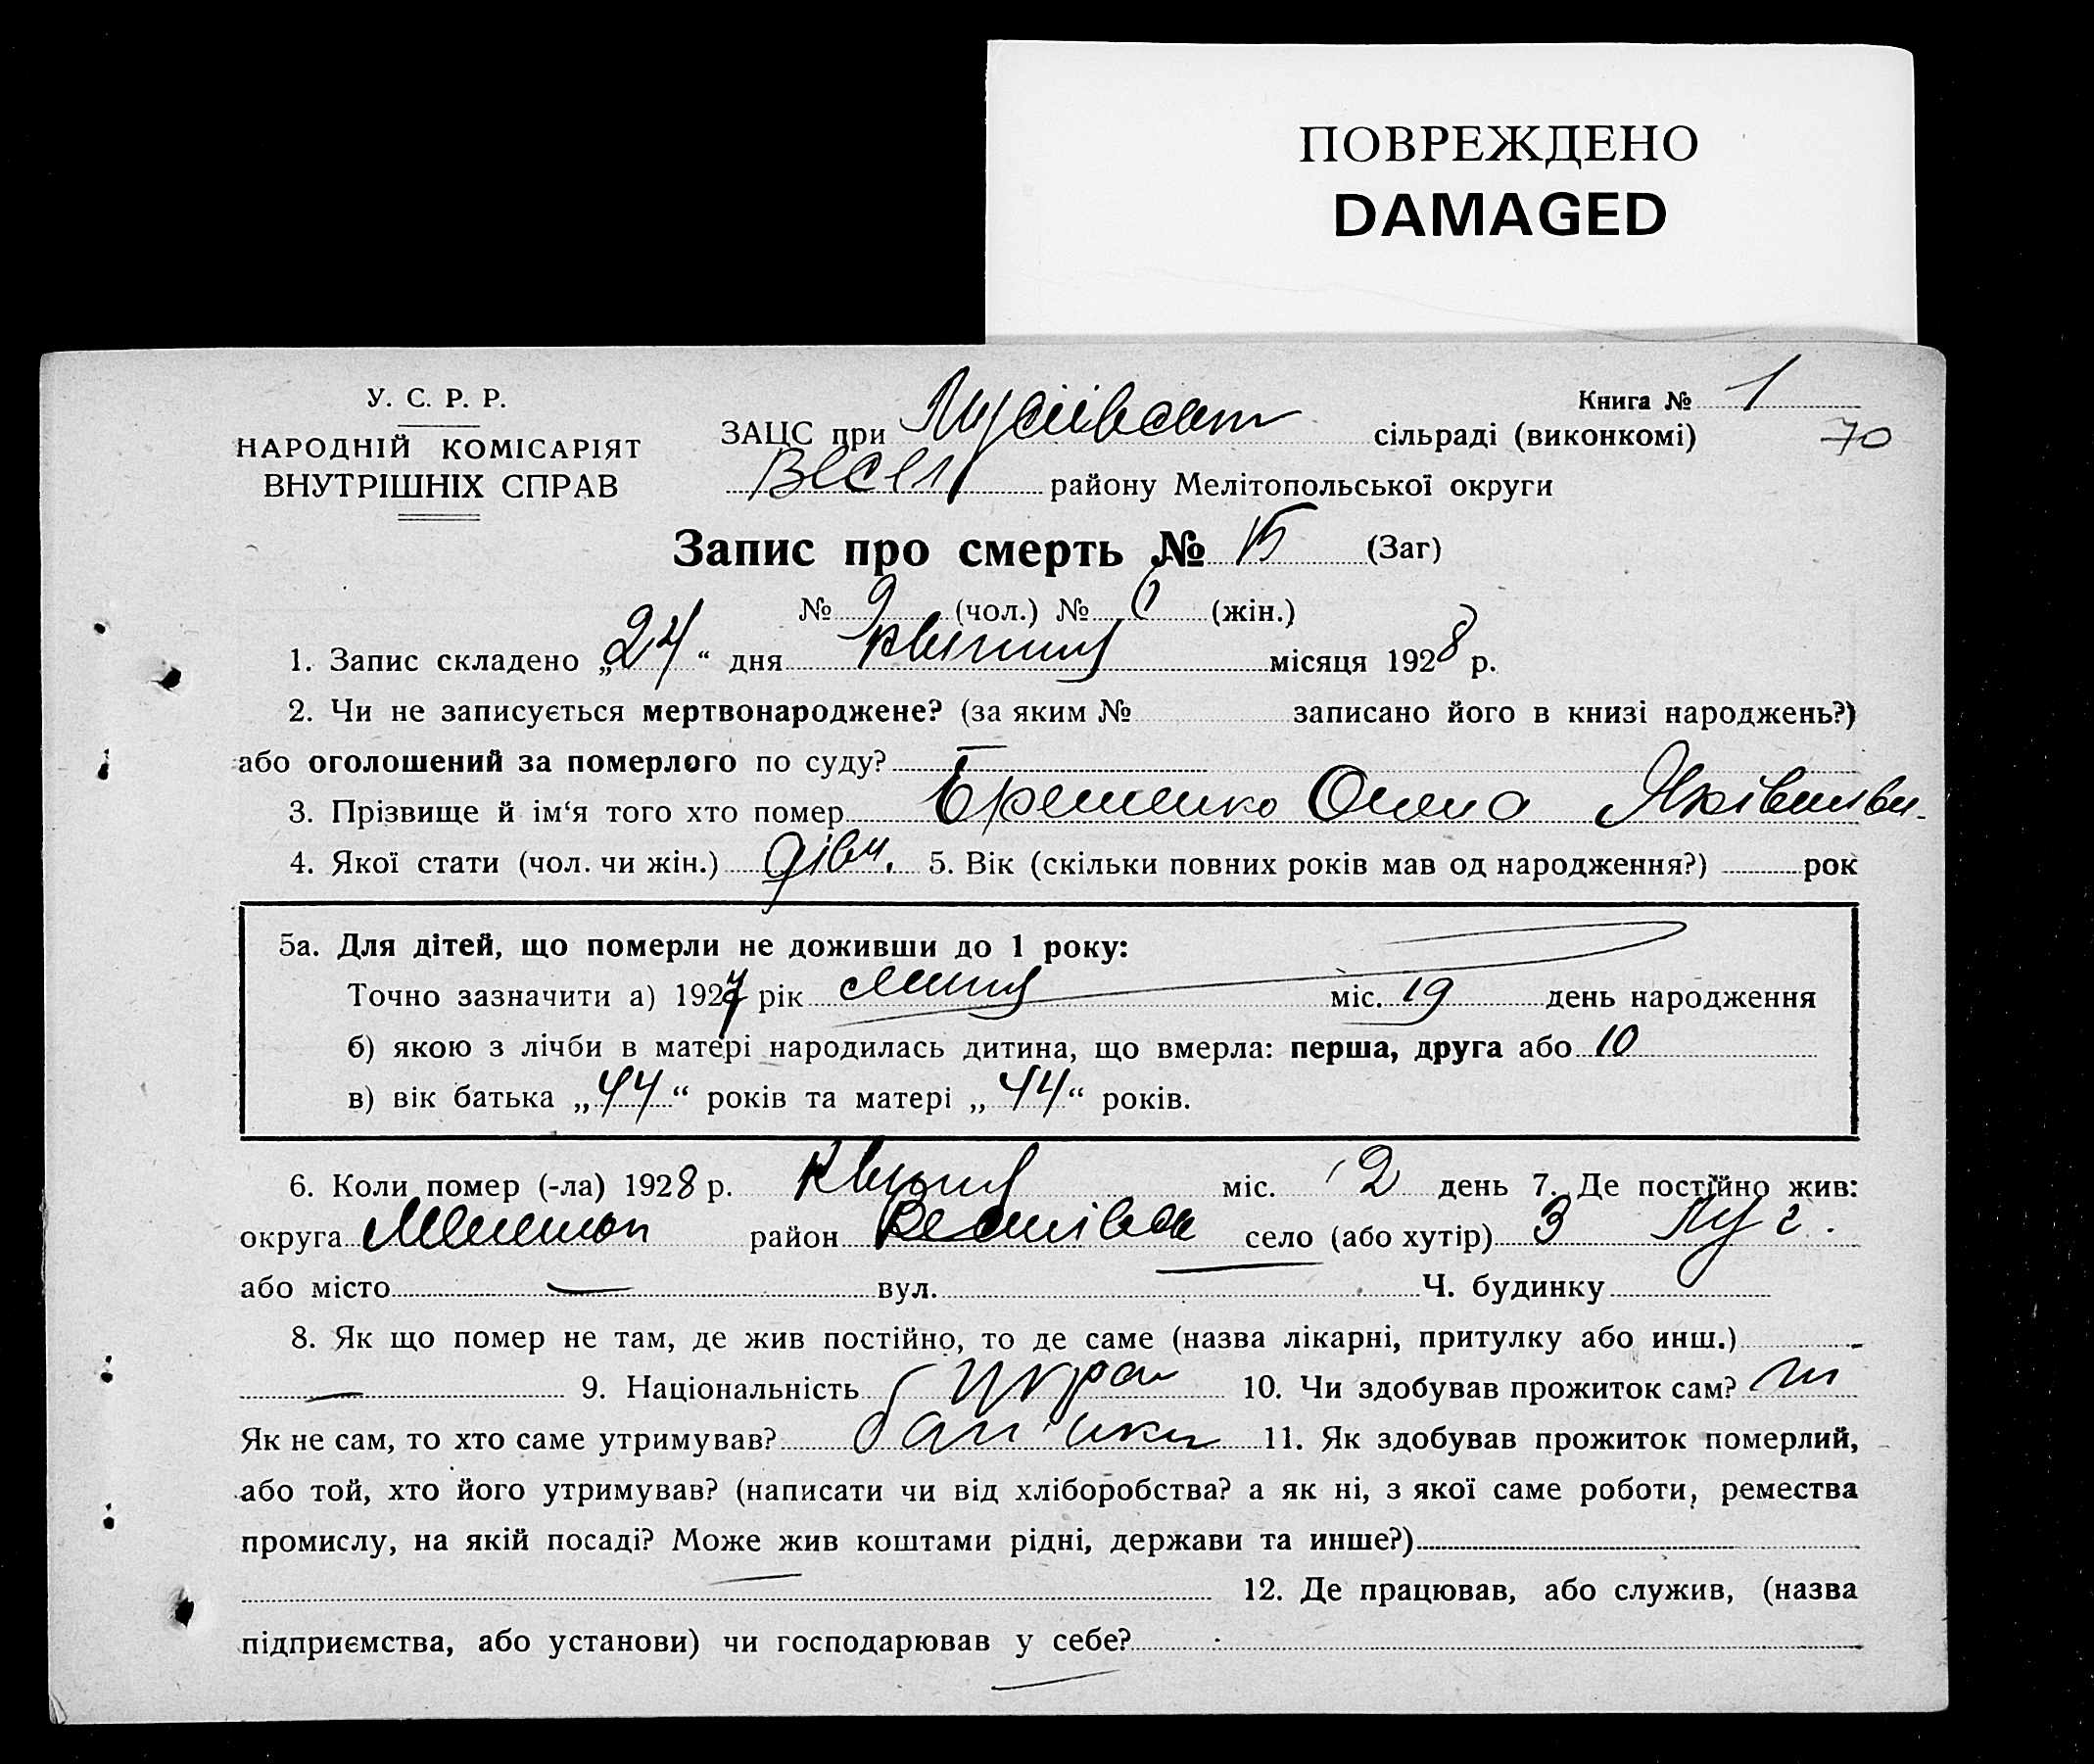 ПОВРЕЖДЕНО
DAMAGED
У. С. Р. Р.
НАРОДНІЙ КОМІСАРІЯТ
ВНУТРІШНІХ СПРАВ
Книга № 1
70
ЗАЦС при сільраді (виконкомі)
Весел району Мелітопольської округи
Запис про смерть № 15 (Заг)
№ 9 (чол.) № 6 (жін.)
1. Запис складено „24“ дня квітня місяця 1928 р.
2. Чи не записується мертвонароджене? (за яким № записано його в книзі народжень?)
або оголошений за померлого по суду? —
3. Прізвище й ім‘я того хто помер Єременко Олена Яківлівн.
4. Якої стати (чол. чи жін.) дівч. 5. Вік (скільки повних років мав од народження?) рок
5а. Для дітей, що померли не доживши до 1 року:
Точно зазначити а) 1927 рік липня міс. 19 день народження
б) якою з лічби в матері народилась дитина, що вмерла: перша, друга або 10
в) вік батька „44“ років та матері „44“ років.
6. Коли помер (-ла) 1928 р. квітня міс. 2 день 7. Де постійно жив:
округа Мелітоп район Веселівськ село (або хутір) З
або місто — вул. — Ч. будинку
8. Як що помер не там, де жив постійно, то де саме (назва лікарні, притулку або инш.)
— 9. Національність Укра 10. Чи здобував прожиток сам? ні
Як не сам, то хто саме утримував? батьки 11. Як здобував прожиток померлий,
або той, хто його утримував? (написати чи від хліборобства? а як ні, з якої саме роботи, ремества
промислу, на якій посаді? Може жив коштами рідні, держави та инше?)
— 12. Де працював, або служив, (назва
підприємства, або установи) чи господарював у себе? —